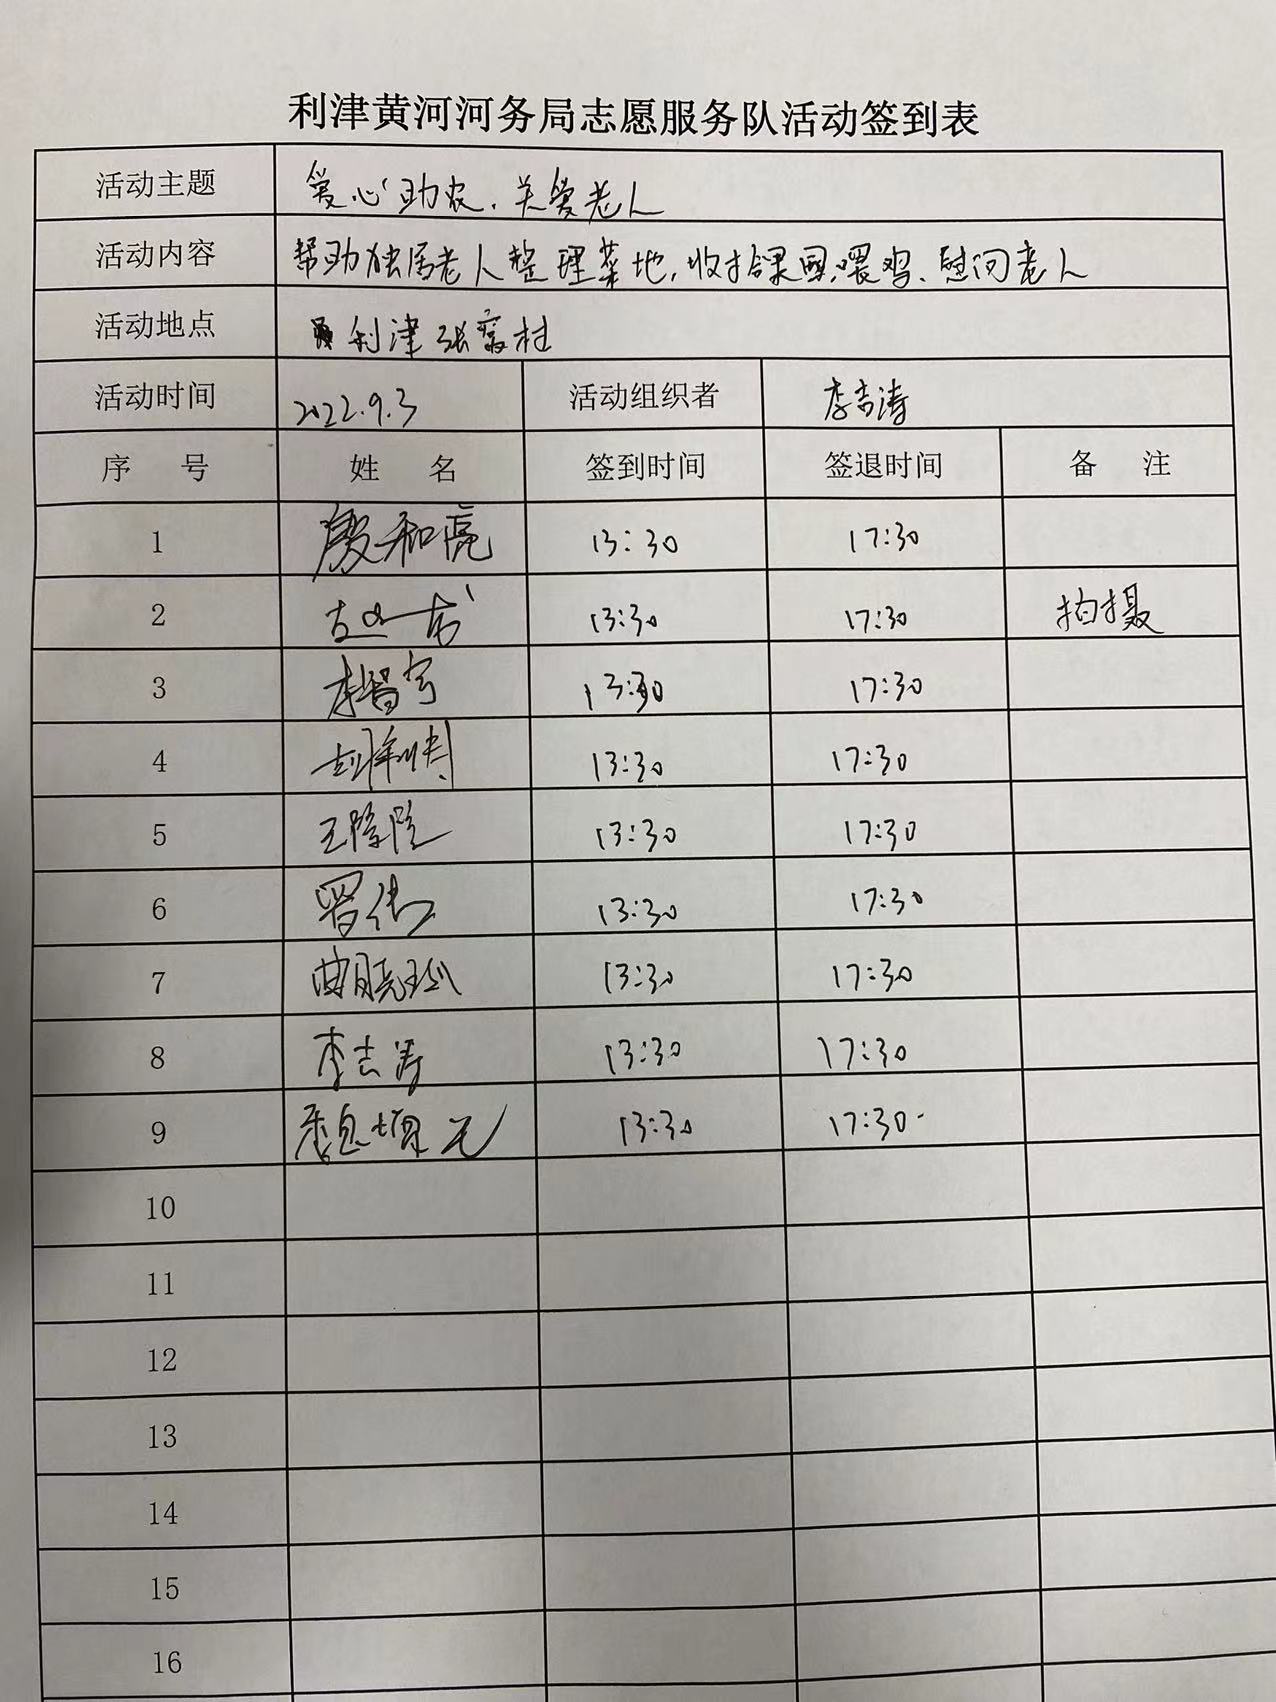 利津黄河河务局志愿服务队活动签到表
活动主题 爱心助农、关爱老人
活动内容 帮助独居老人整理菜地,收拾果园,喂鸡、慰问老人
活动地点 利津张窝村
活动时间 2022.9.3 活动组织者 李志涛
序 号 姓 名 签到时间 签退时间 备 注
1 殷和亮 13:30 17:30
2 13:30 17:30 拍摄
3 李智宇 13:30 17:30
4 13:30 17:30
5 王隆隆 13:30 17:30
6 罗伟 13:30 17:30
7 曲晓 13:30 17:30
8 李志涛 13:30 17:30
9 13:30 17:30
10
11
12
13
14
15
16